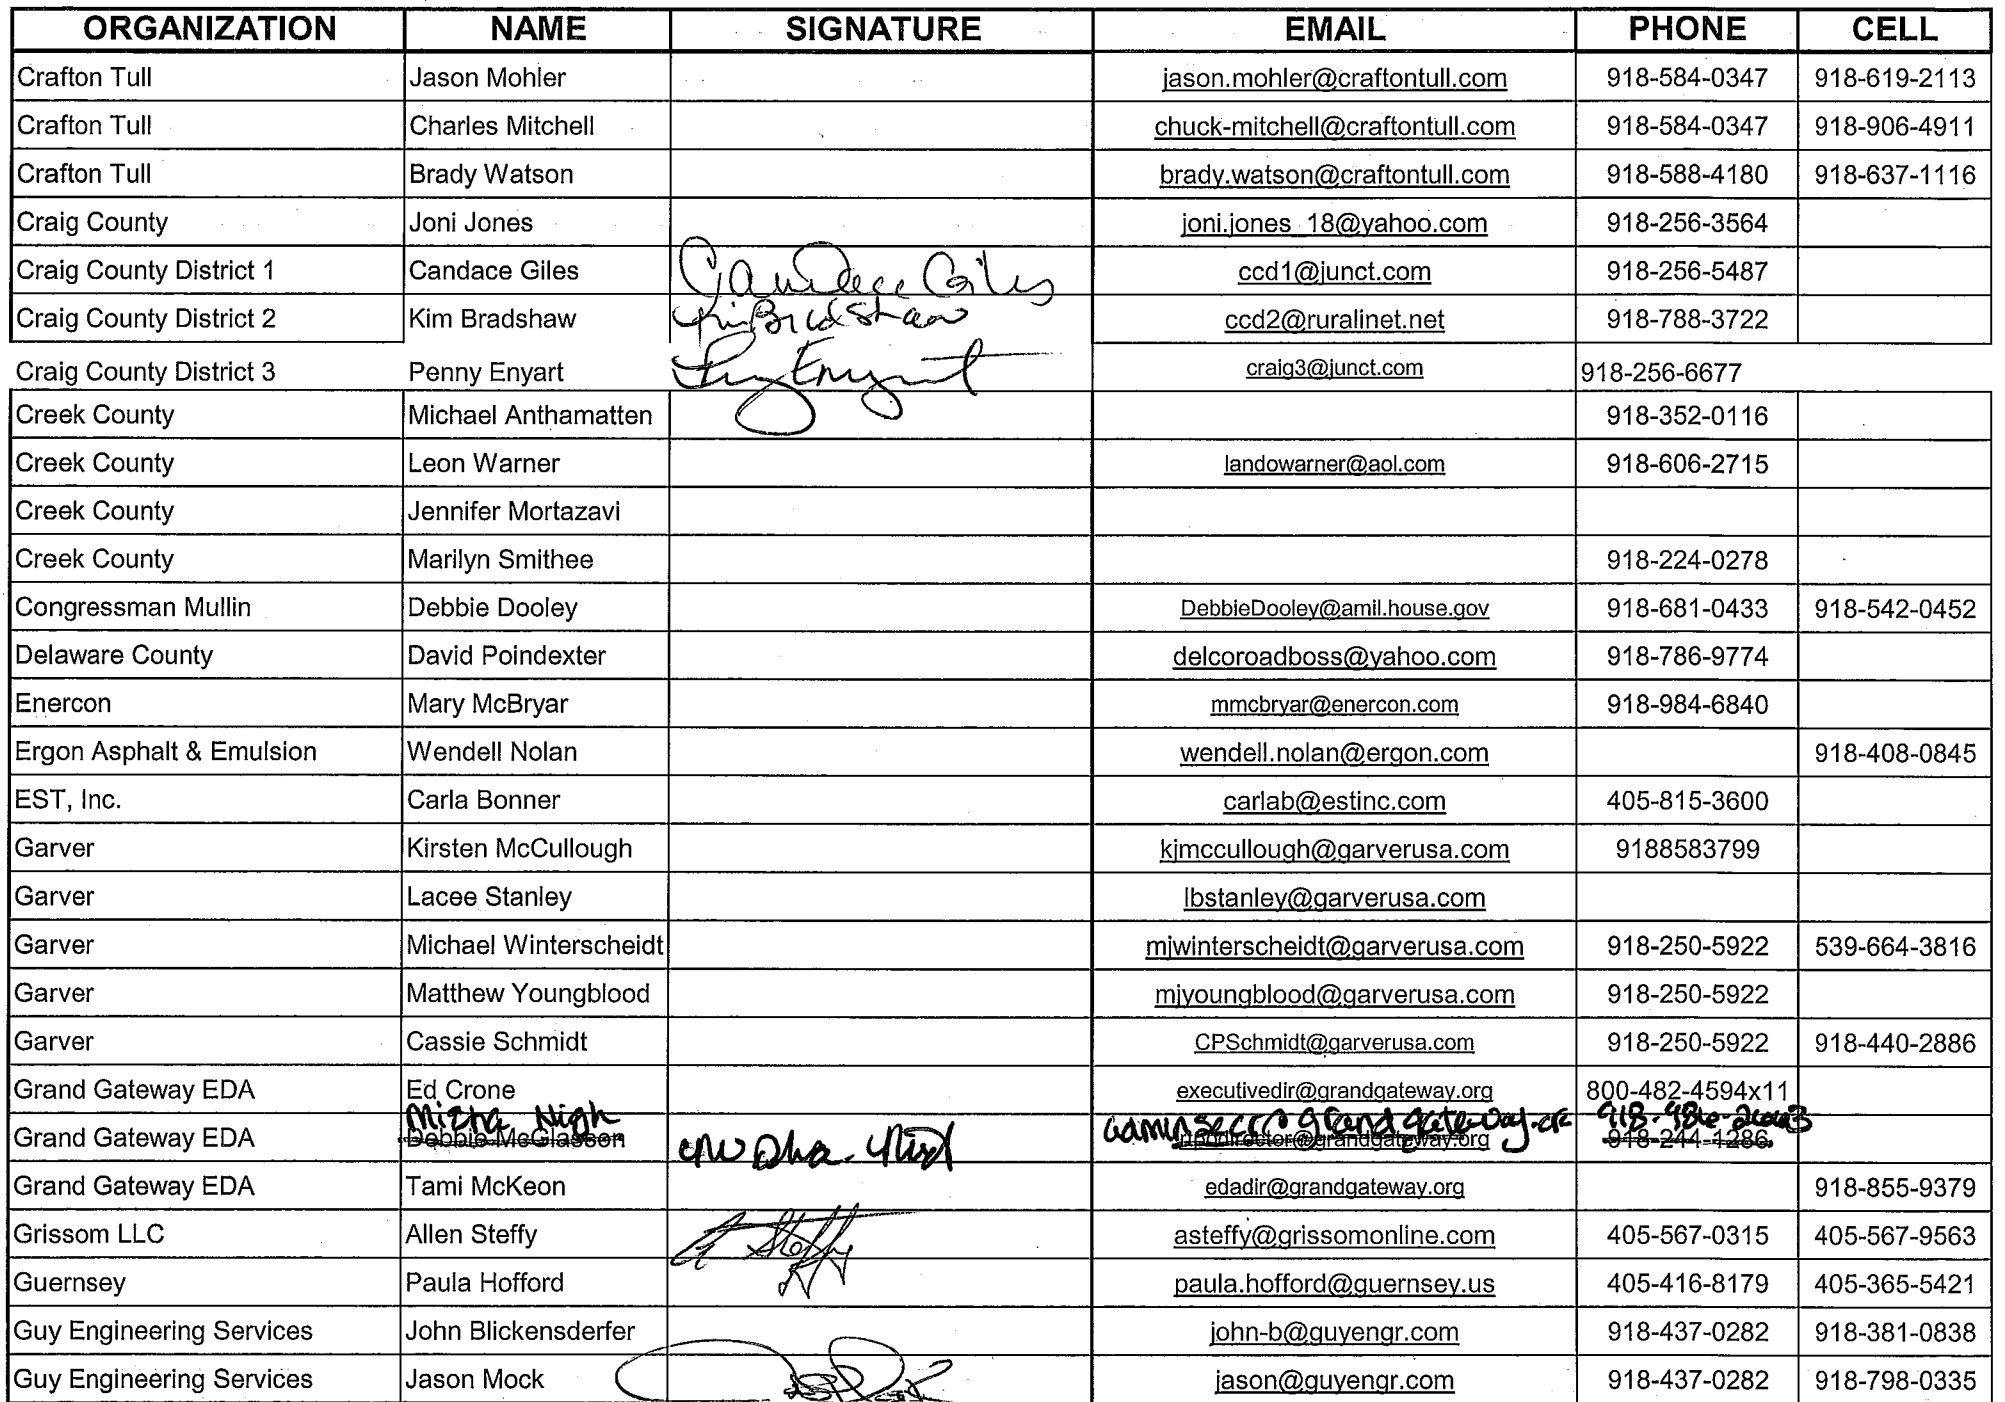 ORGANIZATION NAME SIGNATURE EMAIL PHONE CELL
Crafton Tull Jason Mohler jason.mohler@craftontull.com 918-584-0347 918-619-2113
Crafton Tull Charles Mitchell chuck-mitchell@craftontull.com 918-584-0347 918-906-4911
Crafton Tull Brady Watson brady.watson@craftontull.com 918-588-4180 918-637-1116
Craig County Joni Jones joni.jones_18@yahoo.com 918-256-3564
Craig County District 1 Candace Giles Candace Giles ccd1@junct.com 918-256-5487
Craig County District 2 Kim Bradshaw Kim Bradshaw ccd2@ruralinet.net 918-788-3722
Craig County District 3 Penny Enyart Penny Enyart craig3@junct.com 918-256-6677
Creek County Michael Anthamatten 918-352-0116
Creek County Leon Warner landowarner@aol.com 918-606-2715
Creek County Jennifer Mortazavi
Creek County Marilyn Smithee 918-224-0278
Congressman Mullin Debbie Dooley DebbieDooley@amil.house.gov 918-681-0433 918-542-0452
Delaware County David Poindexter delcoroadboss@yahoo.com 918-786-9774
Enercon Mary McBryar mmcbryar@enercon.com 918-984-6840
Ergon Asphalt & Emulsion Wendell Nolan wendell.nolan@ergon.com 918-408-0845
EST, Inc. Carla Bonner carlab@estinc.com 405-815-3600
Garver Kirsten McCullough kjmccullough@garverusa.com 9188583799
Garver Lacee Stanley lbstanley@garverusa.com
Garver Michael Winterscheidt mjwinterscheidt@garverusa.com 918-250-5922 539-664-3816
Garver Matthew Youngblood mjyoungblood@garverusa.com 918-250-5922
Garver Cassie Schmidt CPSchmidt@garverusa.com 918-250-5922 918-440-2886
Grand Gateway EDA Ed Crone executivedir@grandgateway.org 800-482-4594x11
Nigh
Grand Gateway EDA Debbie McGlasson 918-244-1286
Grand Gateway EDA Tami McKeon edadir@grandgateway.org 918-855-9379
Grissom LLC Allen Steffy A Steffy asteffy@grissomonline.com 405-567-0315 405-567-9563
Guernsey Paula Hofford paula.hofford@guernsey.us 405-416-8179 405-365-5421
Guy Engineering Services John Blickensderfer john-b@guyengr.com 918-437-0282 918-381-0838
Guy Engineering Services Jason Mock jason@guyengr.com 918-437-0282 918-798-0335